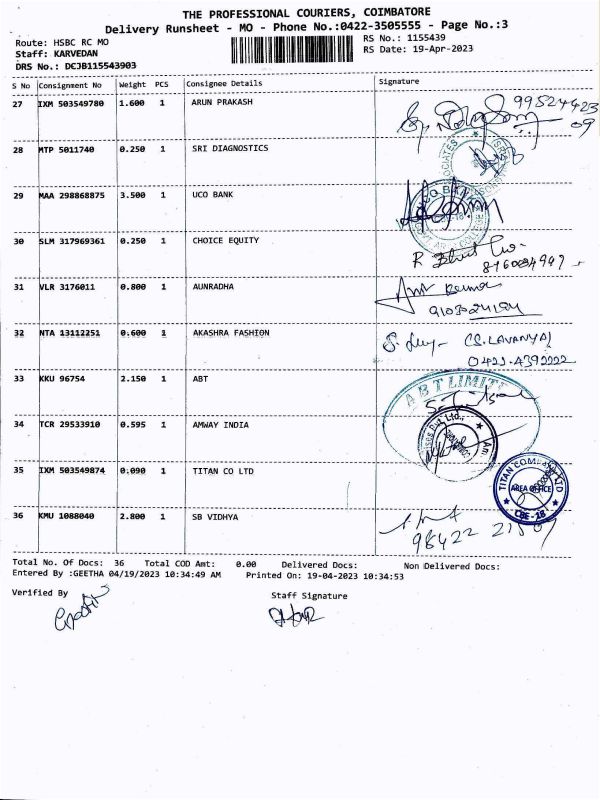 THE PROFESSIONAL COURIERS, COIMBATORE
Delivery Runsheet - MO - Phone No.:0422-3505555 - Page No.:3
Route: HSBC RC MO
Staff: KARVEDAN
DRS No.: DCJB115543903
RS No.: 1155439
RS Date: 19-Apr-2023
S No Consignment No Weight PCS Consignee Details Signature
27 IXM 503549780 1.600 1 ARUN PRAKASH
28 MTP 5011740 0.250 1 SRI DIAGNOSTICS
29 MAA 298868875 3.500 1 UCO BANK
30 SLM 317969361 0.250 1 CHOICE EQUITY
31 VLR 3176011 0.800 1 AUNRADHA
32 NTA 13112251 0.600 1 AKASHRA FASHION
(S.LAVANYA)
0422-4392222
33 KKU 96754 2.150 1 ABT
ABT LIMITED
34 TCR 29533910 0.595 1 AMWAY INDIA
35 IXM 503549874 0.090 1 TITAN CO LTD
TITAN COMPANY LTD
AREA OFFICE
CBE-18
36 KMU 1088040 2.800 1 SB VIDHYA
98422
Total No. Of Docs: 36 Total COD Amt: 0.00 Delivered Docs: Non Delivered Docs:
Entered By :GEETHA 04/19/2023 10:34:49 AM Printed On: 19-04-2023 10:34:53
Verified By
Staff Signature